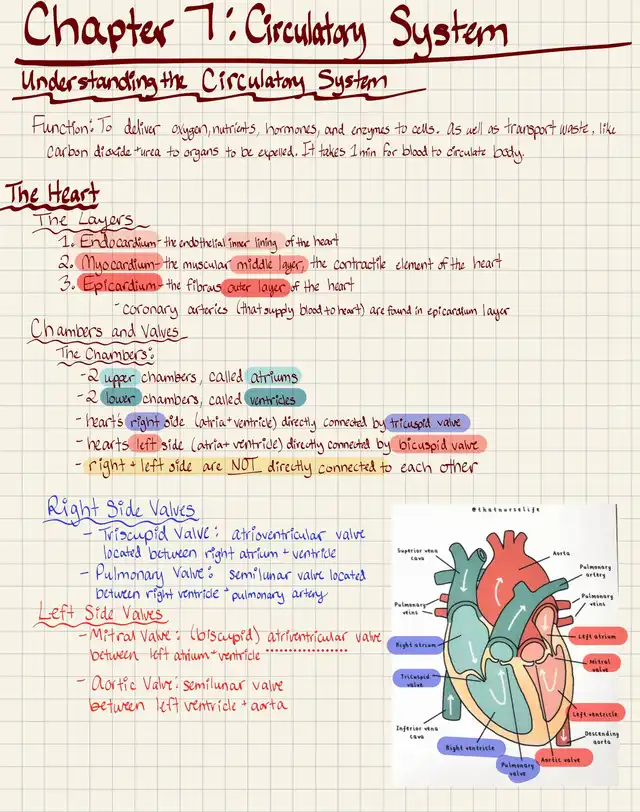 Chapter 7: Circulatory System
Understanding the Circulatory System
Function: To deliver oxygen, nutrients, hormones, and enzymes to cells. As well as transport waste, like
carbon dioxide + urea to organs to be expelled. It takes 1 min for blood to circulate body.
The Heart
The Layers
1. Endocardium - the endothelial inner lining of the heart
2. Myocardium - the muscular middle layer, the contractile element of the heart
3. Epicardium - the fibrus outer layer of the heart
- coronary arteries (that supply blood to heart) are found in epicardium layer
Chambers and Valves
The Chambers:
- 2 upper chambers, called atriums
- 2 lower chambers, called ventricles
- heart's right side (atria + ventricle) directly connected by tricuspid valve
- hearts left side (atria + ventricle) directly connected by bicuspid valve
- right + left side are NOT directly connected to each other
Right Side Valves
- Triscupid Valve: atrioventricular valve
located between right atrium + ventricle
- Pulmonary Valve: semilunar valve located
between right ventricle + pulmonary artery
Left Side Valves
- Mitral Valve: (biscupid) atriventricular valve
between left atrium + ventricle
- Aortic Valve: semilunar valve
between left ventricle + aorta
@thatnurselife
Superior vena
cava
Aorta
Pulmonary
artery
Pulmonary
veins
Pulmonary
veins
Right atrium
Left atrium
Mitral
valve
Tricuspid
valve
Left ventricle
Inferior vena
cava
Descending
aorta
Right ventricle
Pulmonary
valve
Aortic valve